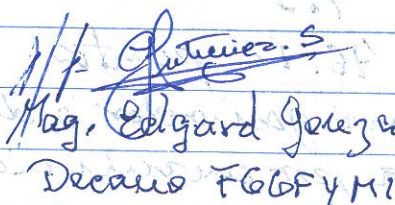 Gutierrez. S
Mag. Edgard Gonza
Decano FGGFYMI